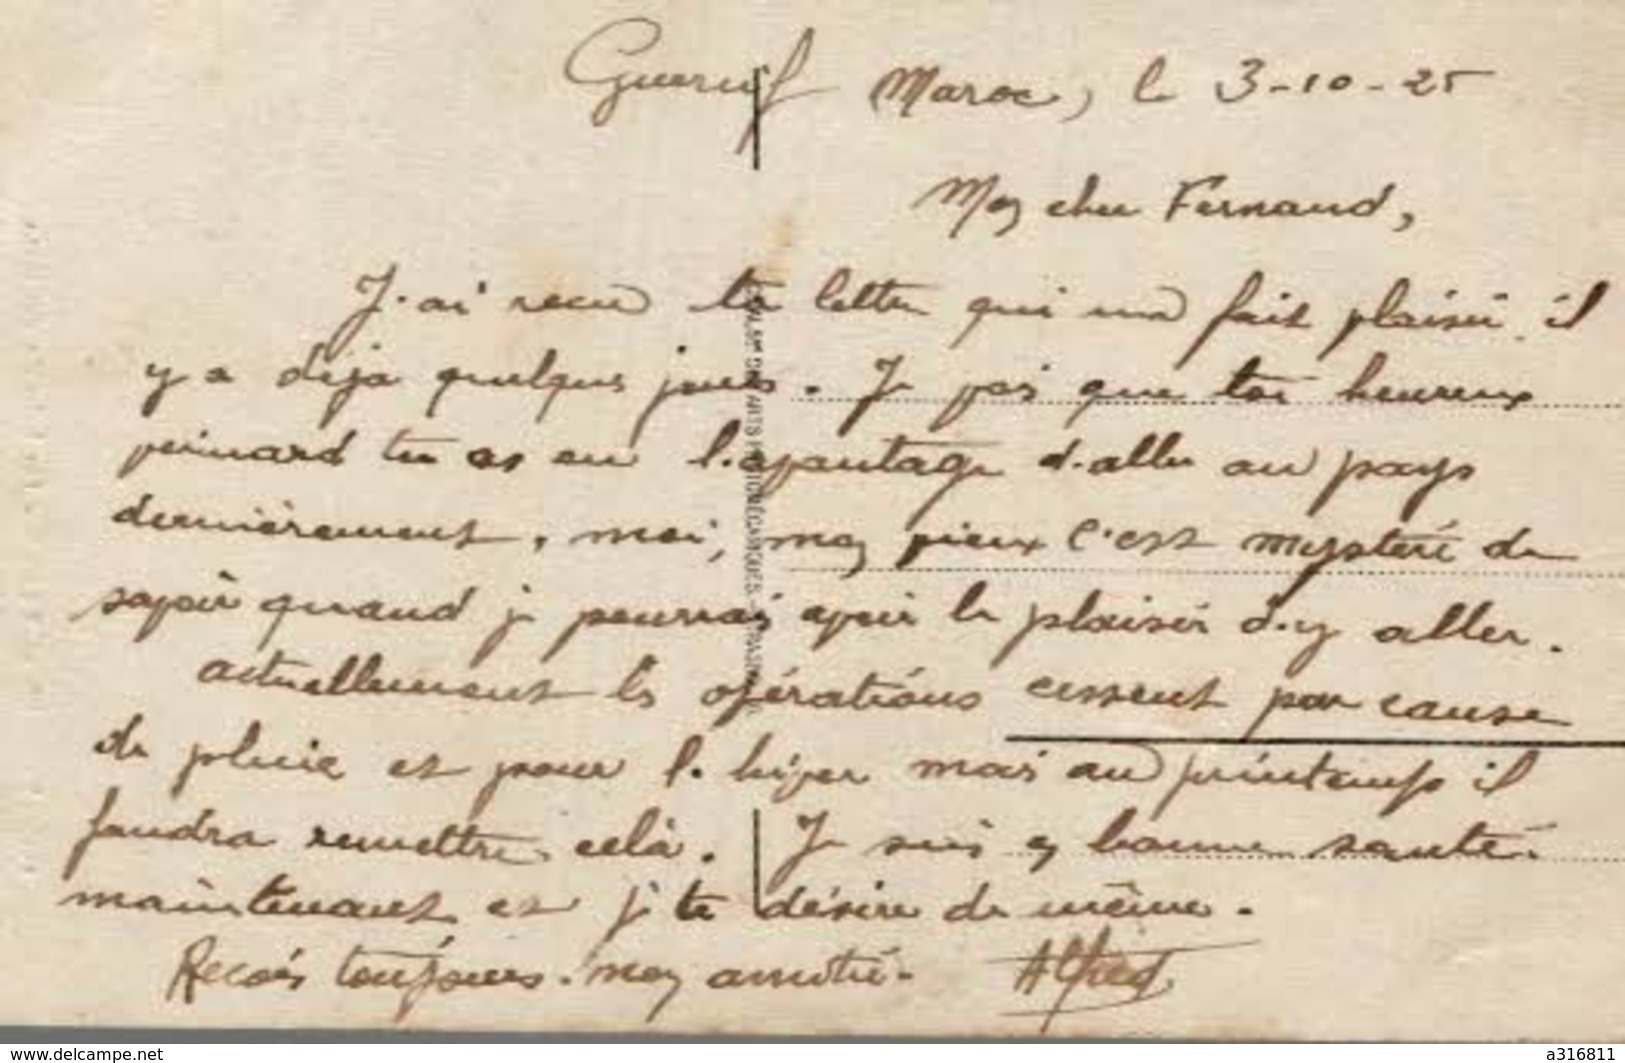 Guercif (Maroc) le 3-10-25
Mon cher Fernand,
J'ai recu ta lettre qui m'a fait plaisir il
y a déja quelques jours. Je vois que toi heureux
veinard tu as eu l'avantage d'aller au pays
dernièrement, moi, mon vieux c'est mystère de
savoir quand je pourrai avoir le plaisir d'y aller.
actuellement les opérations cessent par cause
de pluie et pour l'hiver mais au printemps il
faudra remettre celà. Je suis en bonne santé
maintenant et je te désire de même.
Recois toujours mon amitié. Alfred
www.delcampe.net
a316811